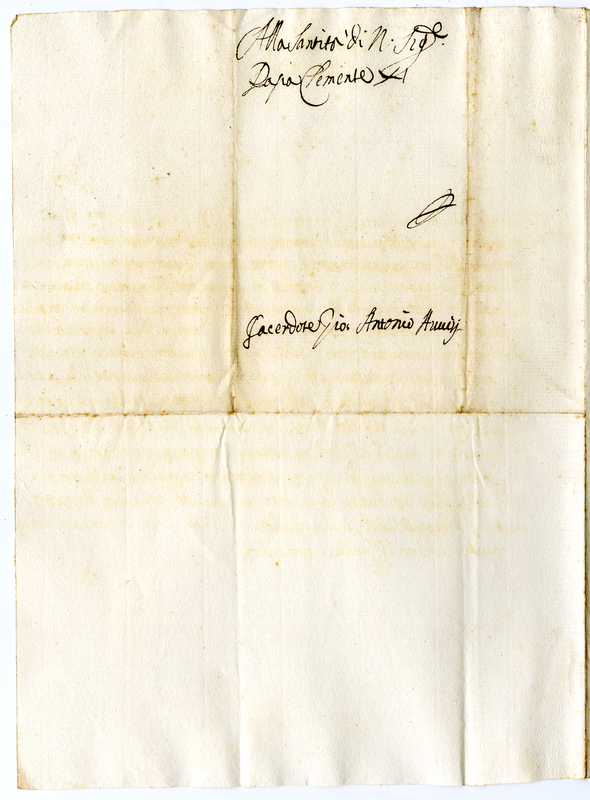 Alla Santità di N. Sigre.
Papa Clemente XI
Sacerdote Gio: Antonio